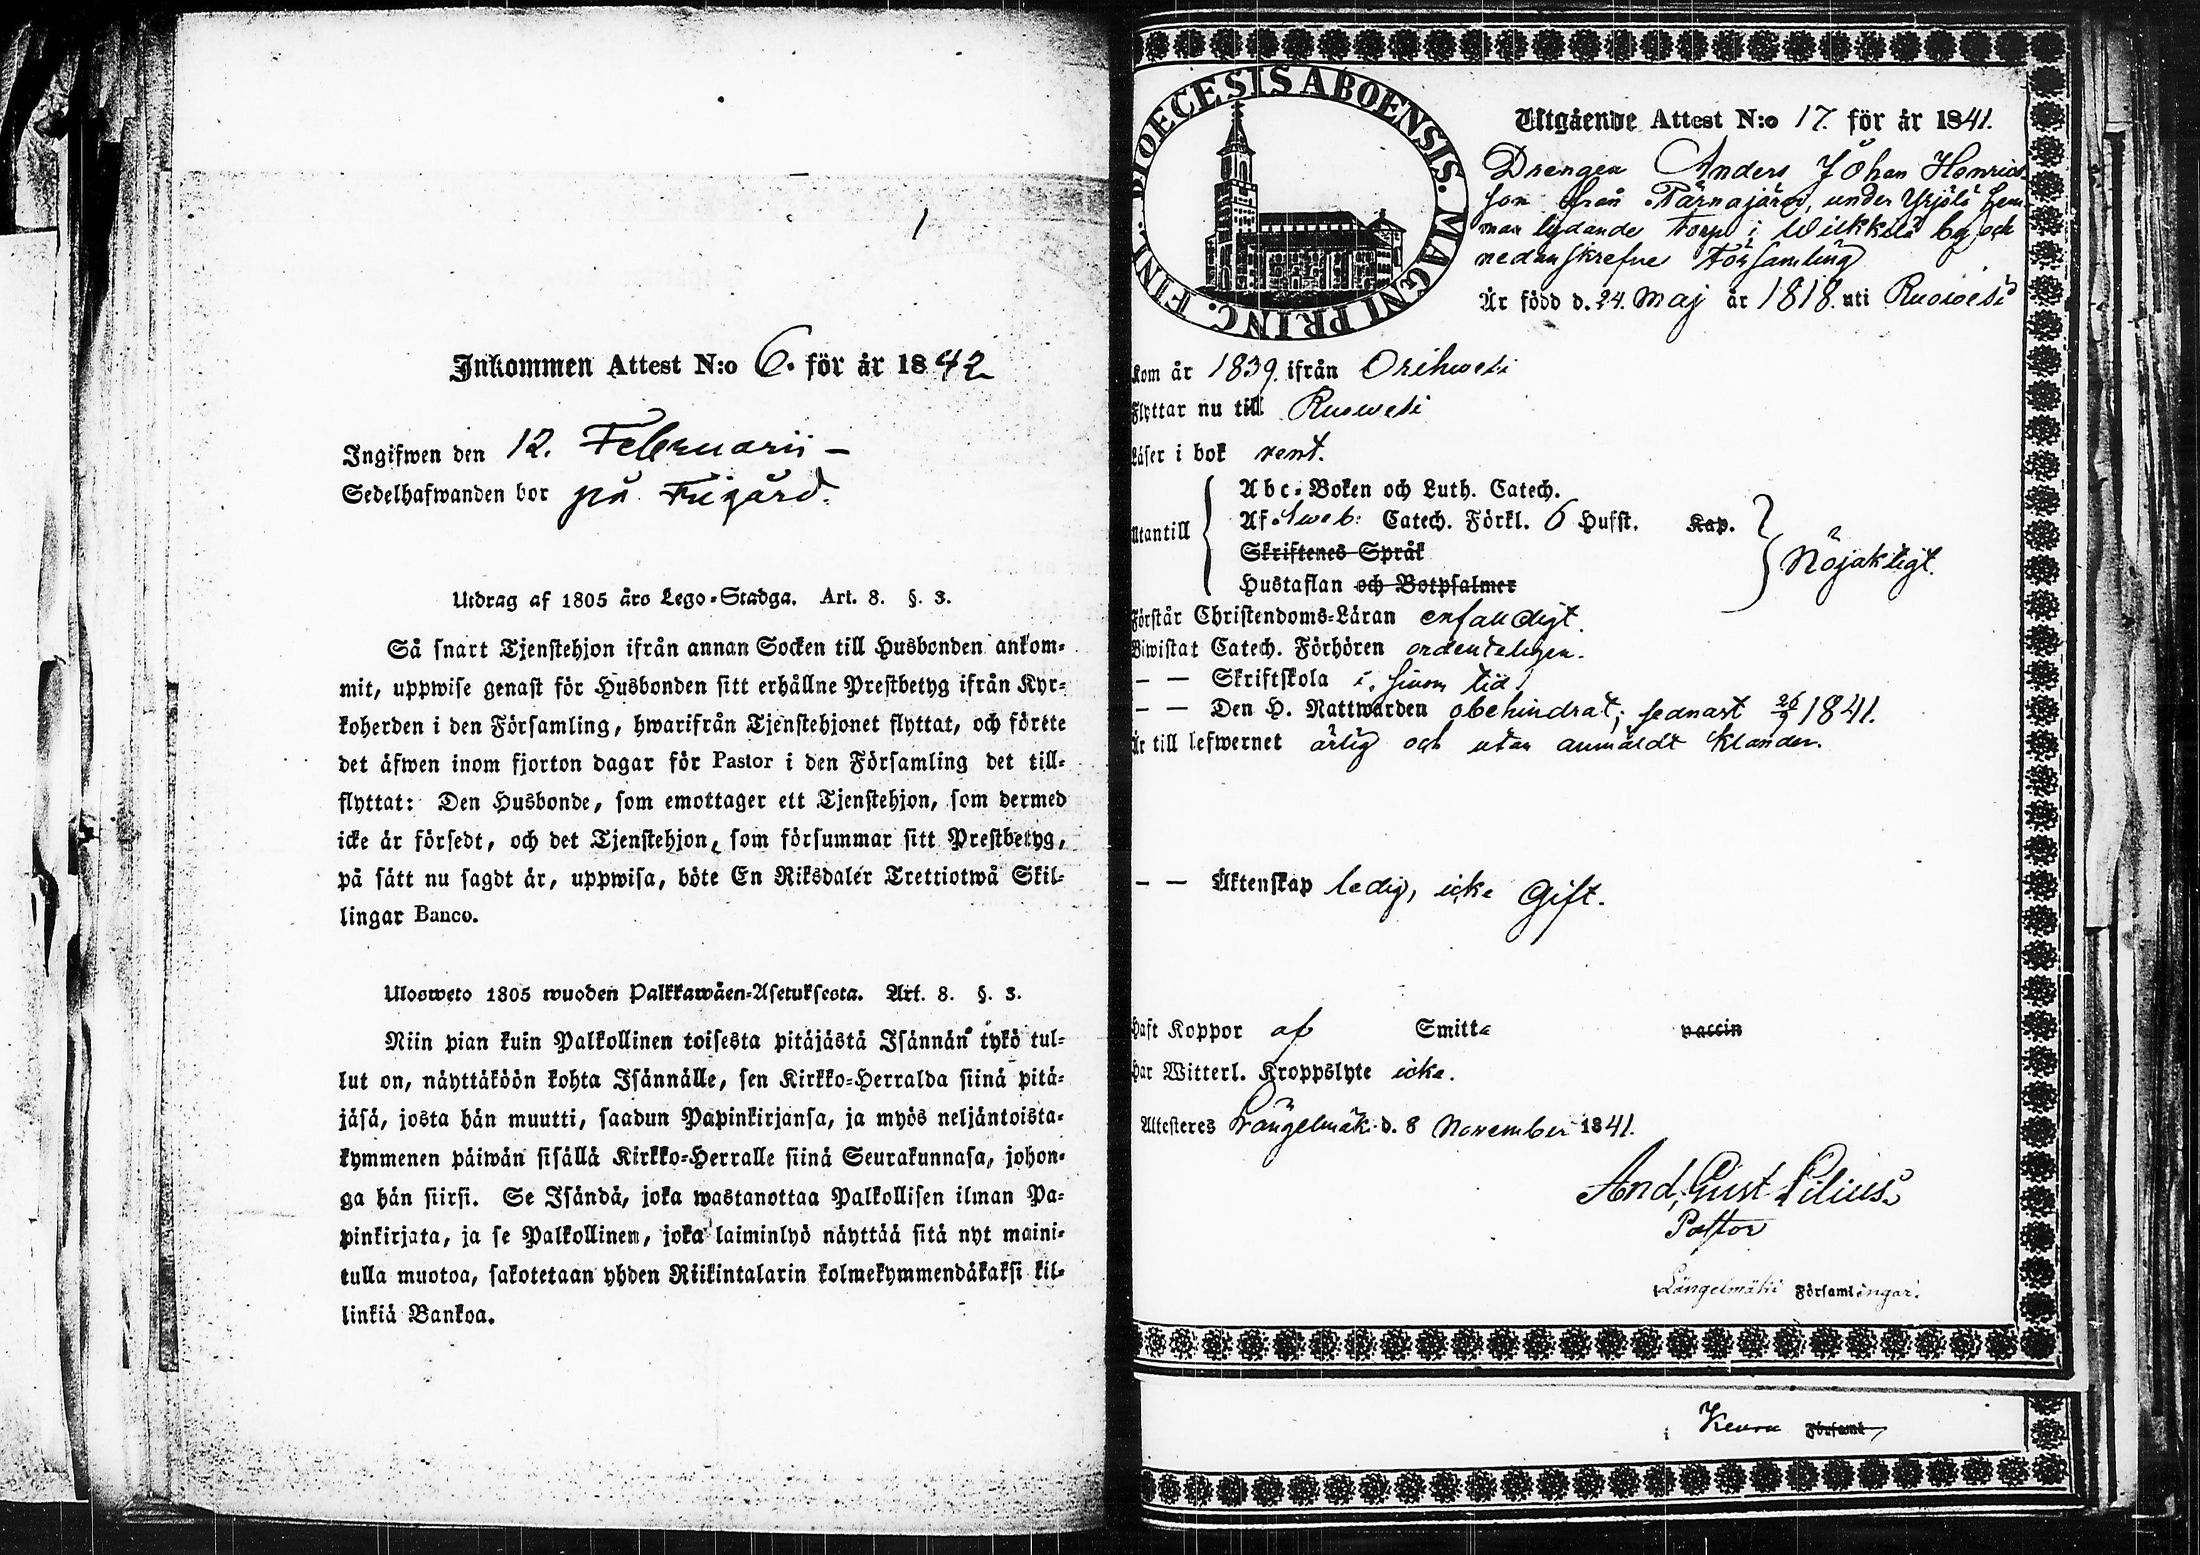 1
Inkommen Attest N:o 6. för år 1842
Ingifwen den 12. Februarii –
Sedelhafwanden bor på Frigård.
Utdrag af 1805 års Lego-Stadga. Art. 8. §. 3.
Så snart Tjenstehjon ifrån annan Socken till Husbonden ankom-
mit, uppwise genast för Husbonden sitt erhållne Prestbetyg ifrån Kyr-
koherden i den Församling, hwarifrån Tjenstehjonet flyttat, och förete
det äfwen inom fjorton dagar för Pastor i den Församling det till-
flyttat: Den Husbonde, som emottager ett Tjenstehjon, som dermed
icke är försedt, och det Tjenstehjon, som försummar sitt Prestbetyg,
på sätt nu sagdt är, uppwisa, böte En Riksdaler Trettiotwå Skil-
lingar Banco.
Ulosweto 1805 wuoden Palkkawäen-Asetuksesta. Art. 8. §. 3.
Niin pian kuin Palkollinen toisesta pitäjästä Isännän tykö tul-
lut on, näyttäköön kohta Isännälle, sen Kirkko-Herralda siinä pitä-
jäsä, josta hän muutti, saadun Papinkirjansa, ja myös neljäntoista-
kymmenen päiwän sisällä Kirkko-Herralle siinä Seurakunnasa, johon-
ga hän siirsi. Se Isändä, joka wastanottaa Palkollisen ilman Pa-
pinkirjata, ja se Palkollinen, joka laiminlyö näyttää sitä nyt maini-
tulla muotoa, sakotetaan yhden Riikintalarin kolmekymmendäkaksi kil-
linkiä Bankoa.
DIOECESIS ABOENSIS. MAGNI PRINC. FINL.
Utgående Attest N:o 17. för år 1841.
Drengen Anders Johan Henrics
son från Tärnajärvi, under Yrjölä hem
man lydande Torp i Wilkkilä by och
nedanskrefne Församling
Är född d. 24. Maj år 1818. uti Ruowesi
Kom år 1839. ifrån Orihwesi
Flyttar nu till Ruowesi
Läser i bok rent.
Utantill
Abc-Boken och Luth. Catech.
Af Sweb: Catech. Förkl. 6 Hufst. Kap.
Skriftenes Språk
Hustaflan och Botpsalmer
Nöjaktigt.
Förstår Christendoms-Läran enfaldigt.
Biwistat Catech. Förhören ordenteligen.
– – Skriftskola i sinom tid.
– – Den H. Nattwarden obehindrat; sednast 26/9 1841.
Är till lefwernet ärlig och utan anmäldt klander.
– – Äktenskap ledig, icke Gift.
Haft Koppor af Smitta vaccin
Har Witterl. Kroppslyte icke.
Attesteres Längelmäki d. 8 November 1841.
And. Gust Lilius.
Pastor
i Längelmäki Församlingar.
i Keuru Församl